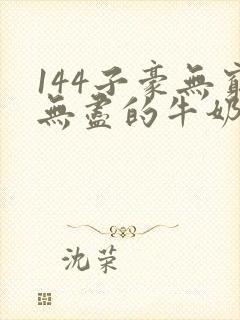 144子豪無窮
無盡的牛奶
沈荣